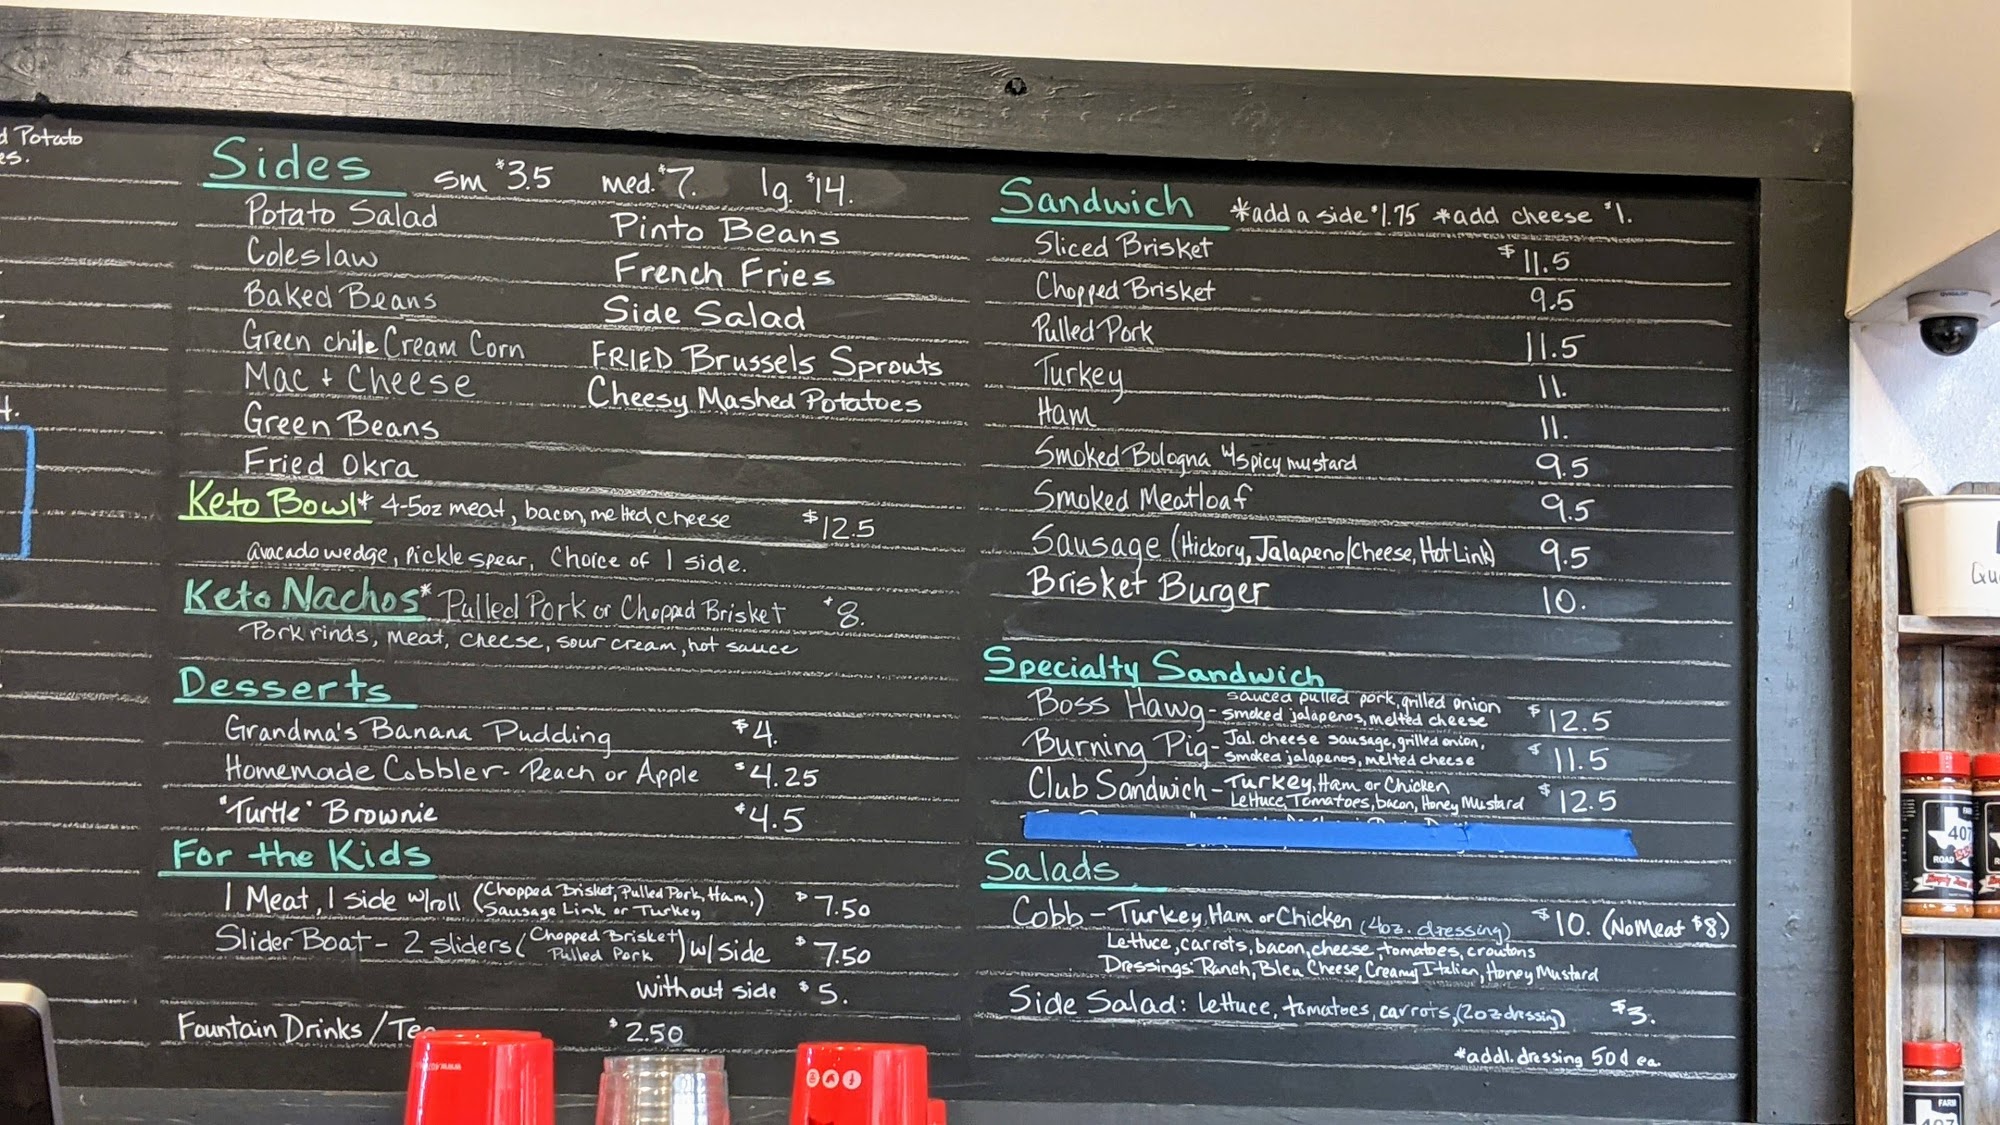 d Potato
es.
4.
Sides sm $3.5 med. $7. lg. $14.
Potato Salad
Coleslaw
Baked Beans
Green chile Cream Corn
Mac + Cheese
Green Beans
Fried Okra
Pinto Beans
French Fries
Side Salad
FRIED Brussels Sprouts
Cheesy Mashed Potatoes
Keto Bowl* 4-5oz meat, bacon, melted cheese $12.5
avacado wedge, pickle spear, Choice of 1 side.
Keto Nachos* Pulled Pork or Chopped Brisket $8.
Pork rinds, meat, cheese, sour cream, hot sauce
Desserts
Grandma's Banana Pudding $4.
Homemade Cobbler - Peach or Apple $4.25
"Turtle" Brownie $4.5
For the Kids
1 Meat, 1 side w/roll (Chopped Brisket, Pulled Pork, Ham, $7.50
Sausage Link or Turkey)
Slider Boat - 2 sliders (Chopped Brisket Pulled Pork) w/ side $7.50
without side $5.
Fountain Drinks / Tea $2.50
Sandwich *add a side $1.75 *add cheese $1.
Sliced Brisket $11.5
Chopped Brisket 9.5
Pulled Pork 11.5
Turkey 11.
Ham 11.
Smoked Bologna w/spicy mustard 9.5
Smoked Meatloaf 9.5
Sausage (Hickory, Jalapeno/Cheese, Hot Link) 9.5
Brisket Burger 10.
Specialty Sandwich
Boss Hawg - sauced pulled pork, grilled onion
smoked jalapenos, melted cheese $12.5
Burning Pig - Jal. cheese sausage, grilled onion,
smoked jalapenos, melted cheese $11.5
Club Sandwich - Turkey, Ham or Chicken
Lettuce, Tomatoes, bacon, Honey Mustard $12.5
Salads
Cobb - Turkey, Ham or Chicken (4oz. dressing) $10. (No Meat $8.)
Lettuce, carrots, bacon, cheese, tomatoes, croutons
Dressings: Ranch, Bleu Cheese, Creamy Italian, Honey Mustard
Side Salad: Lettuce, tomatoes, carrots, (2oz dressing) $3.
*addl. dressing 50¢ ea.
Qu
FARM
407
ROAD
FARM
407